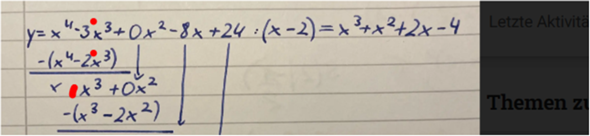 y=x⁴-3x³+0x²-8x+24 : (x-2)=x³+x²+2x-4
-(x⁴-2x³)
x x³+0x²
-(x³-2x²)
Letzte Aktivitä
Themen zu